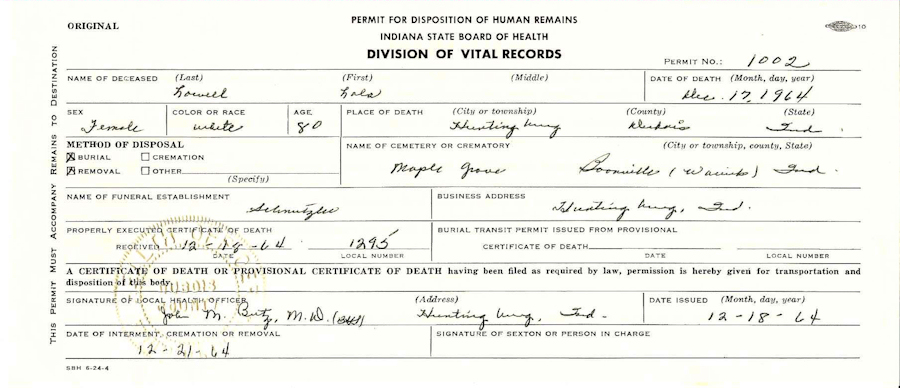 ORIGINAL
PERMIT FOR DISPOSITION OF HUMAN REMAINS
INDIANA STATE BOARD OF HEALTH
DIVISION OF VITAL RECORDS
10
PERMIT NO.: 1002
THIS PERMIT MUST ACCOMPANY REMAINS TO DESTINATION
NAME OF DECEASED (Last) (First) (Middle) DATE OF DEATH (Month, day, year)
Lowell Lola Dec. 17, 1964
SEX COLOR OR RACE AGE PLACE OF DEATH (City or township) (County) (State)
Female white 80 Huntingburg Dubois Ind.
METHOD OF DISPOSAL NAME OF CEMETERY OR CREMATORY (City or township, county, State)
☒ BURIAL ☐ CREMATION
☒ REMOVAL ☐ OTHER Maple Grove Boonville (Warrick) Ind.
(Specify)
NAME OF FUNERAL ESTABLISHMENT BUSINESS ADDRESS
Huntingburg, Ind.
PROPERLY EXECUTED CERTIFICATE OF DEATH BURIAL TRANSIT PERMIT ISSUED FROM PROVISIONAL
RECEIVED 12-18-64 1295 CERTIFICATE OF DEATH
DATE LOCAL NUMBER DATE LOCAL NUMBER
A CERTIFICATE OF DEATH OR PROVISIONAL CERTIFICATE OF DEATH having been filed as required by law, permission is hereby given for transportation and
disposition of this body.
SIGNATURE OF LOCAL HEALTH OFFICER (Address) DATE ISSUED (Month, day, year)
John M. Butz, M.D. Huntingburg, Ind. 12-18-64
DATE OF INTERMENT, CREMATION OR REMOVAL SIGNATURE OF SEXTON OR PERSON IN CHARGE
12-21-64
SBH 6-24-4